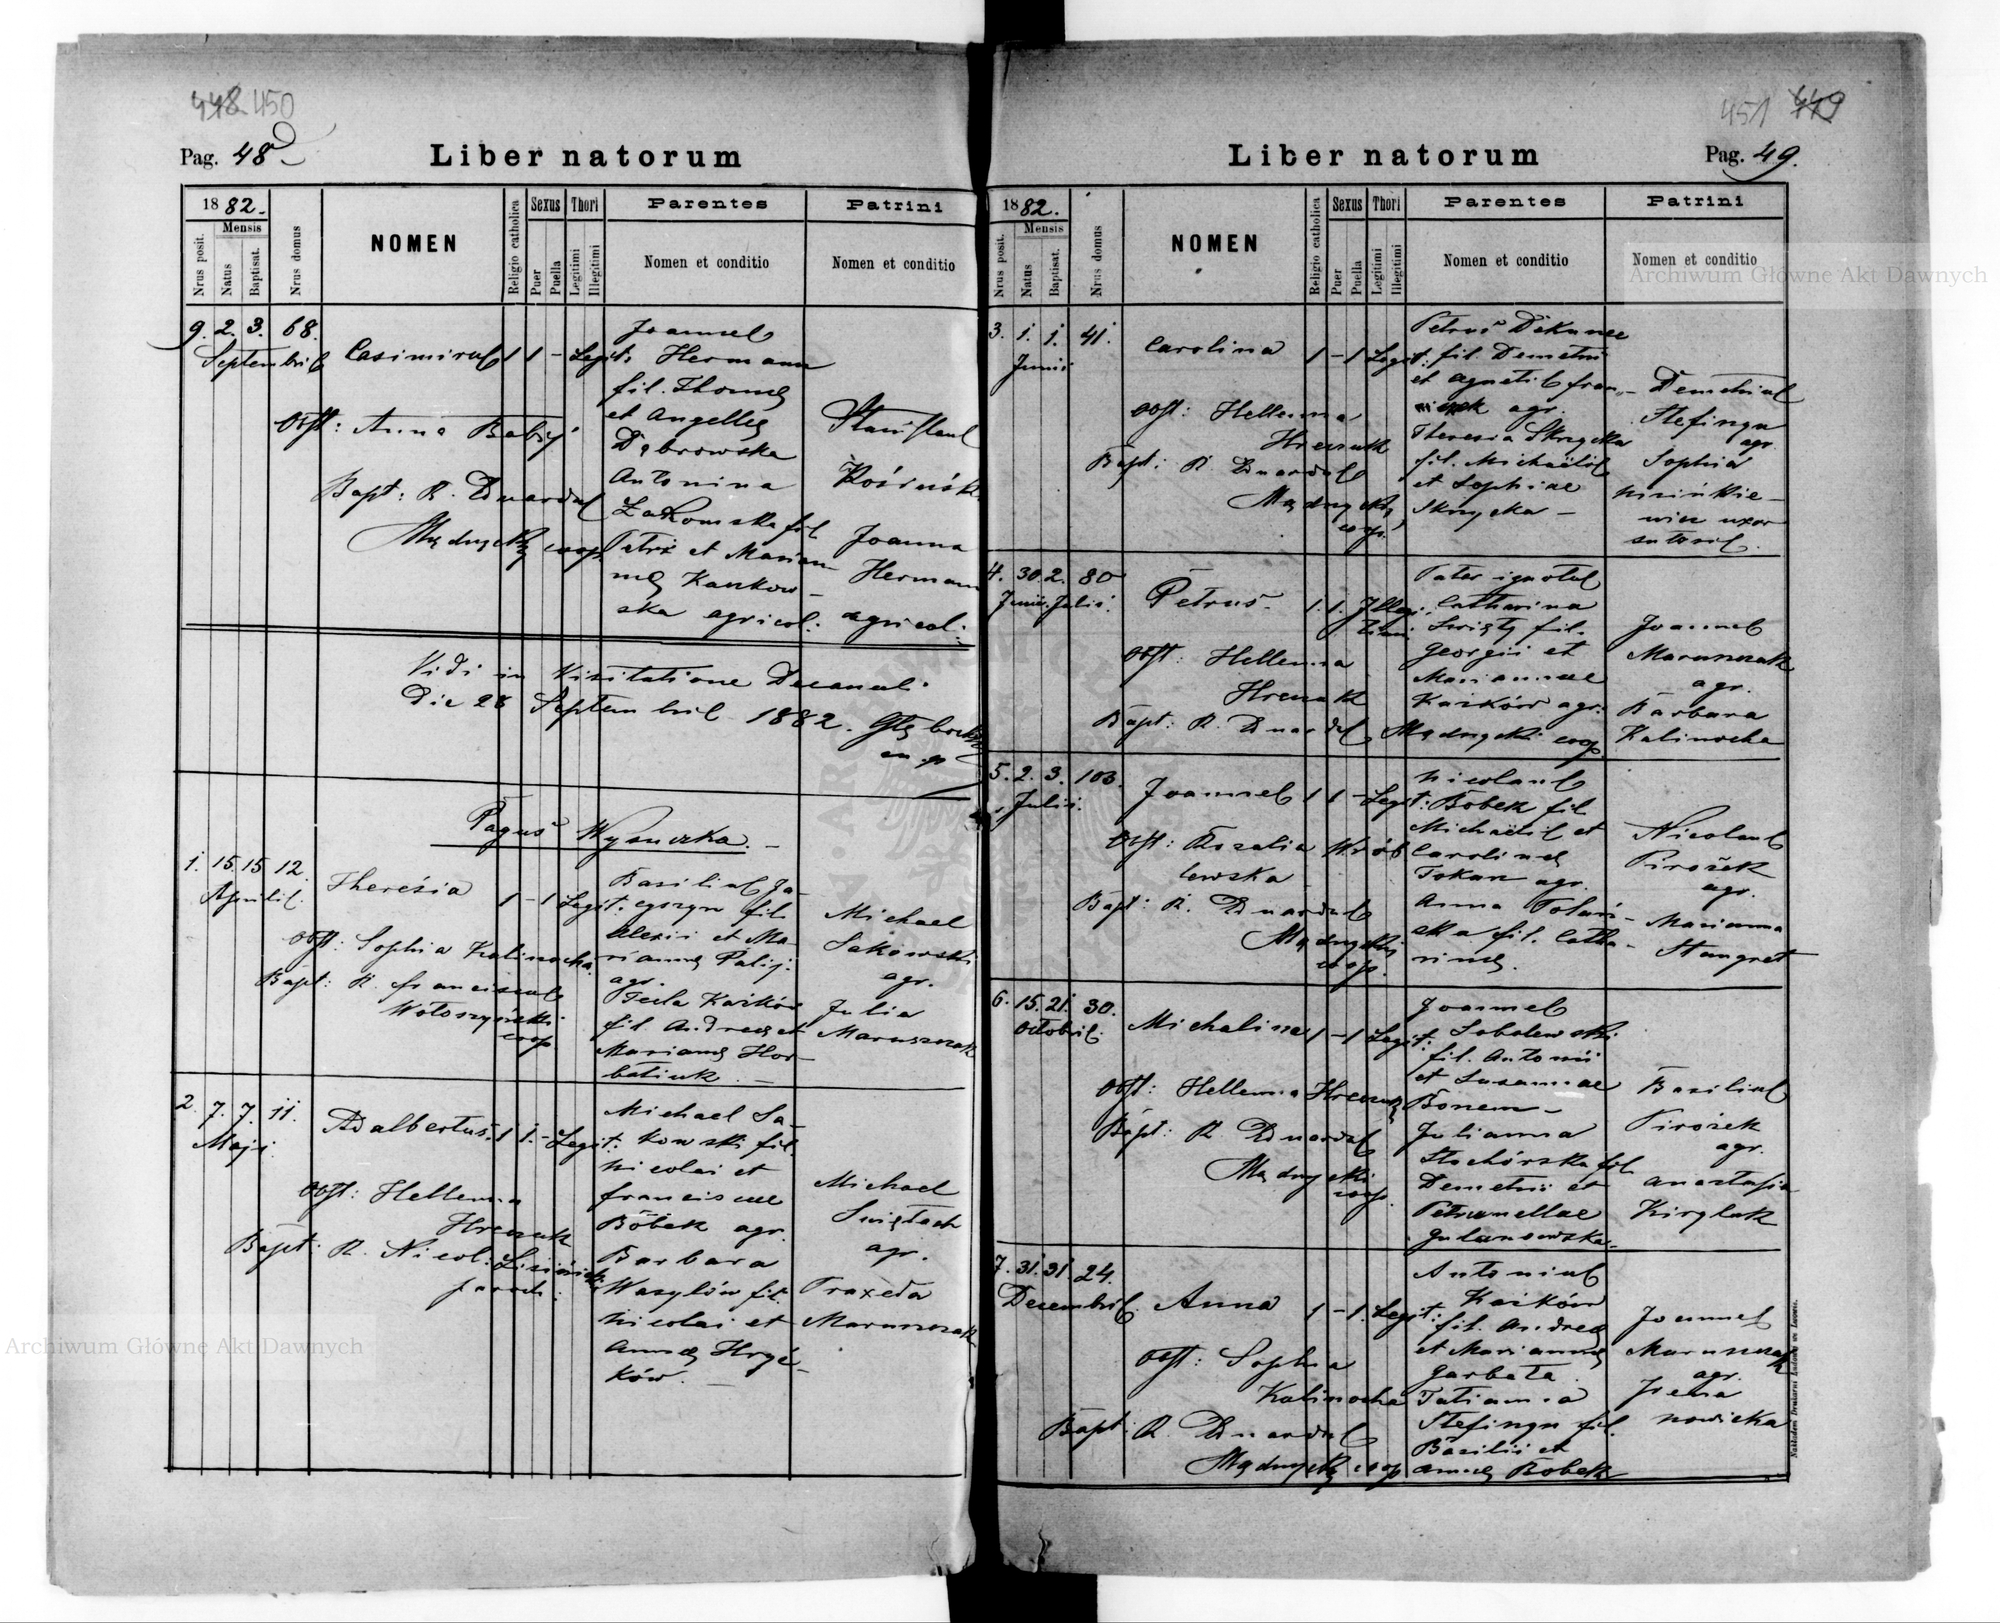 448 450
Pag. 48
Liber natorum
1882.
Mensis
Nrus posit.
Natus
Baptisat.
Nrus domus
NOMEN
Religio catholica
Sexus
Puer
Puella
Thori
Legitimi
Illegitimi
Parentes
Nomen et conditio
Patrini
Nomen et conditio
9. 2. 3. 68.
Septembris
Casimirus 1 1 - Legit:
Obst: Anna Babij
Bapt: R. Eduardus
Mądrzycki coop.
Joannes
Hermann
fil. Thomae
et Angellae
Dąbrowska
Antonina
Zakomska fil
Petri et Marian
nae Kankow-
ska agricol:
Stanislaus
Joanna
Hermann
agricol:
Vidi in Visitatione Decanali
Die 28 Septembris 1882.
Pagus Wysuczka. -
1. 15. 15 12.
Aprilis
Theresia 1 - 1 Legit.
Obst: Sophia Kalinocha
Bapt: R. Franciscus
Wołoszyński
coop
Basilius Ja-
cyszyn fil
Alexii et Ma-
riannae Palij.
agr.
Tecla Kaików
fil. Andreae et
Mariannae Hor-
batiuk. -
Michael
Sakowski
agr.
Julia
Maruszczak
2. 7. 7. 11.
Maji
Adalbertus. 1 1. - Legit:
Obst: Hellena
Hreczuk
Bapt: R. Nicol:
paroch:
Michael Sa-
kowski fil.
Nicolai et
Franciscae
Bobek agr.
Barbara
Wasylów fil.
Nicolai et
Annae Hryć-
ków. -
Michael
Swiętach
agr.
Praxeda
Maruszczak
451 449
Liber natorum
Pag. 49.
1882.
Mensis
Nrus posit.
Natus
Baptisat.
Nrus domus
NOMEN
Religio catholica
Sexus
Puer
Puella
Thori
Legitimi
Illegitimi
Parentes
Nomen et conditio
Patrini
Nomen et conditio
3. 1. 1. 41.
Junii
Carolina 1 - 1 Legit:
Obst: Hellenna
Hreczuk
Bapt: R Eduardus
Mądrzycki
coop.
fil. Demetrii
agr.
Theresia Skrzycka
fil. Michaëlis
et Sophiae
Skrzycka -
Demetrius
Stefingu
agr
Sophia
uxor
sutoris.
4. 30. 2. 80
Junii. Julii.
Petrus. 1. 1. Illegi-
timi
Obst: Hellenna
Hreczuk
Bapt: R. Eduardus Mądrzycki coop.
Pater ignotus
Catharina
fil.
Georgii et
Mariannae
Kaików agr.
Joannes
Maruszczak
agr.
Barbara
Kalinocha
5. 2. 3. 103.
Julii.
Joannes 1 1 - Legit:
Obst: Rozalia Wrób
lewska
Bapt: R. Eduardus
Mądrzycki
coop.
Nicolaus
Bobek fil
Michaëlis et
Carolinae
Tokar agr.
Anna
ska fil. Catha-
rinae.
Nicolaus
Pirożek
agr.
Marianna
Stangret
6. 15. 21. 30.
Octobris.
Michalina 1 - 1 Legit:
Obst: Hellenna Hreczuk
Bapt: R Eduardus
Mądrzycki
coop.
Joannes
Sobolewski
fil. Antonii
et Susannae
Bonem-
Julianna
Stachórska fil.
Demetrii et
Petrunellae
Basilius
Pirożek
agr.
Anastasia
Kirylak
7. 31. 31. 24.
Decembris.
Anna 1 - 1. Legit:
Obst: Sophia
Kalinocha
Bapt: R. Eduardus
Mądrzycki coop
Antonius
Kaików
fil. Andreae
et Mariannae
Garbata.
Tatianna
Stefingu fil.
Basilii et
Annae Bobek
Joannes
Maruszczak
agr.
Irena
Nowicka
Archiwum Główne Akt Dawnych
Archiwum Główne Akt Dawnych